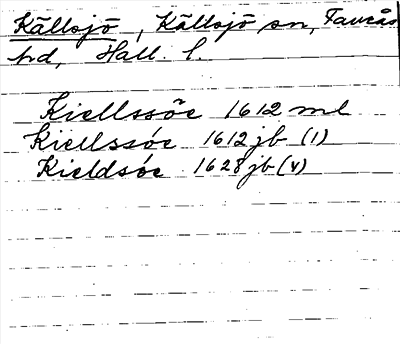 Källsjö, Källsjö sn, Faurås
hd, Hall. l.
Kiellssöe 1612 ml
Kiellssóe 1612 jb (1)
Kieldsóe 1628 jb (4)